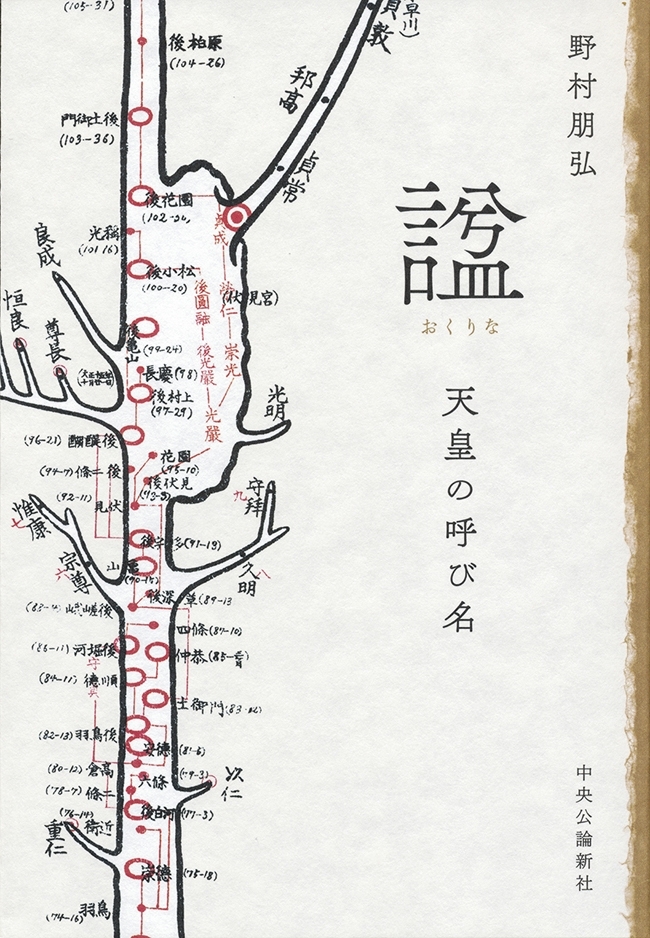 野村朋弘
諡
おくりな
天皇の呼び名
中央公論新社
(105-31)
後柏原
(104-26)
門御土後
(103-36)
後花園
光稱
後小松
(100-20)
後亀山
(99-24)
長慶(98)
後村上
(97-29)
(96-21) 醐醍後
花園
(95-10)
(94-7)條二後
後伏見
(92-11)
見伏
(91-19)
山亀
四條(87-10)
河堀後
仲恭
(84-11)徳順
土御門
(82-13)羽鳥後
安徳
(80-12)倉高
六條
(79-3)
(78-7)條二
後白河(77-3)
(76-14)
衛近
崇徳(75-18)
(74-16)
羽鳥
早川)
貞敦
邦高
貞常
(伏見宮)
貞成
崇光
光嚴
後光嚴
後圓融
良成
恒良
尊良
光明
守邦
九
久明
八
惟康
七
宗尊
六
以仁
重仁